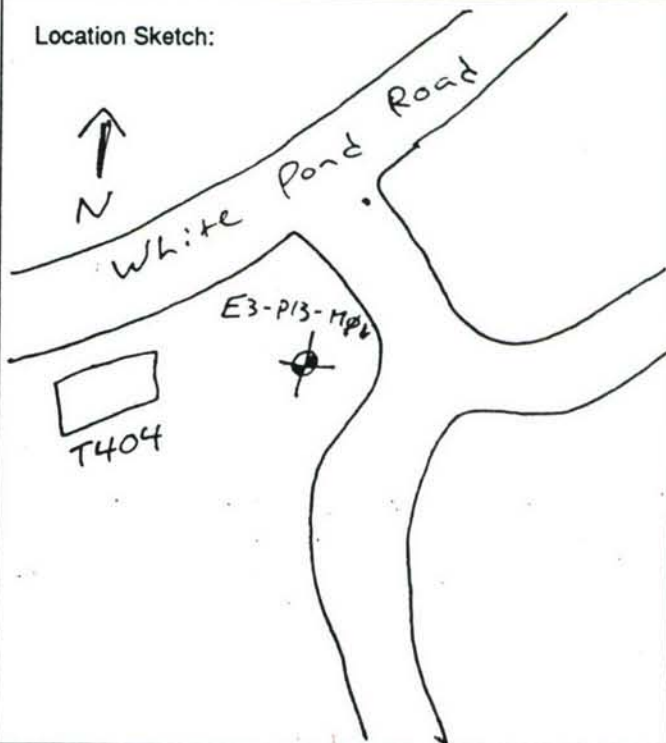 Location Sketch:
N
White Pond Road
E3-P13-MØ1
T404